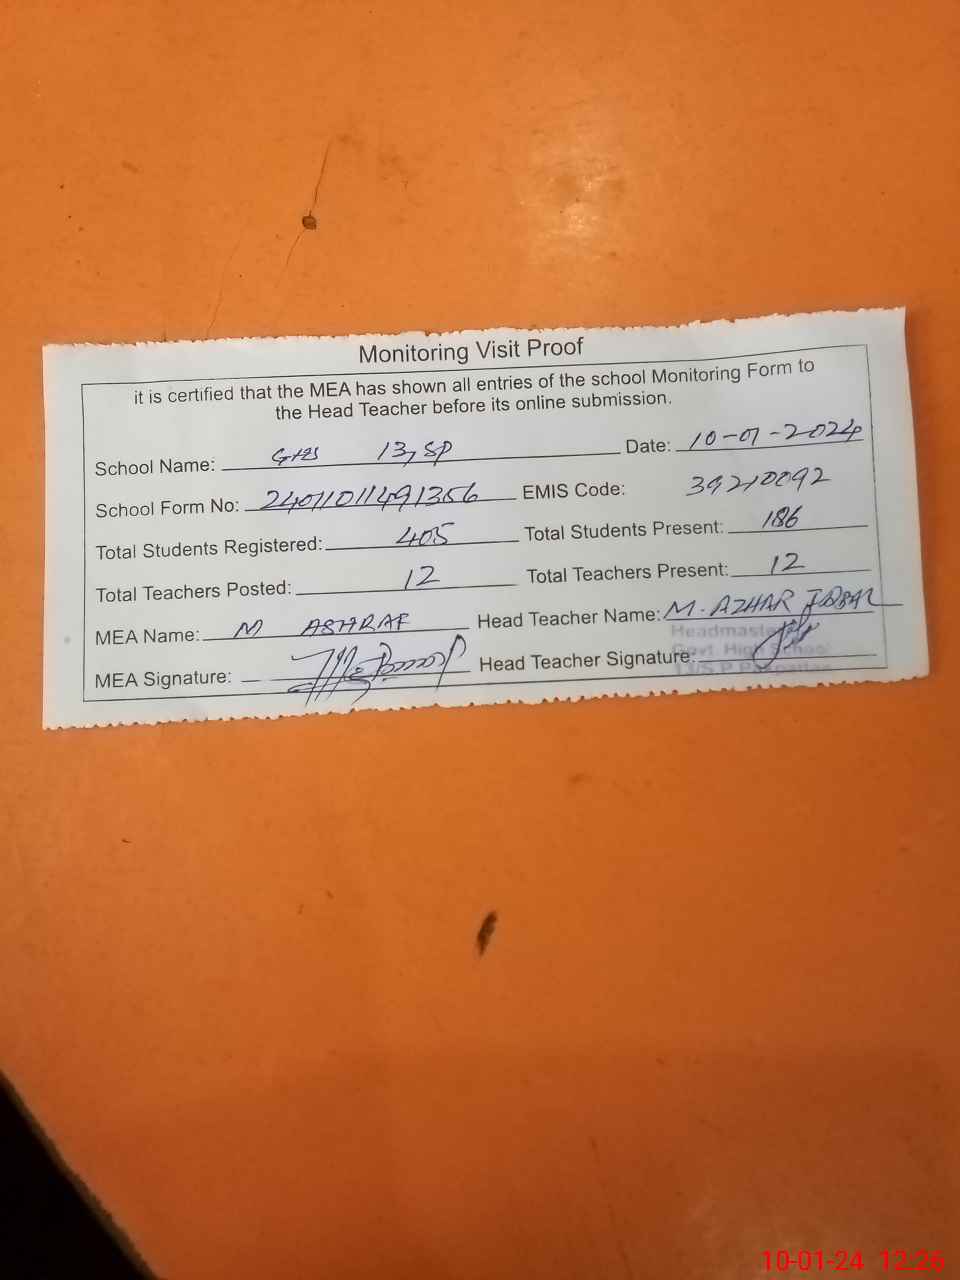 Monitoring Visit Proof
it is certified that the MEA has shown all entries of the school Monitoring Form to
the Head Teacher before its online submission.
School Name: GHS 13, SP Date: 10-01-2024
School Form No: 24011011491356 EMIS Code: 39210092
Total Students Registered: 405 Total Students Present: 186
Total Teachers Posted: 12 Total Teachers Present: 12
MEA Name: M ASHRAF Head Teacher Name: M. AZHAR IQBAL
Headmaster
Govt. High School
MEA Signature: Head Teacher Signature:
13/S.P Pakpattan
10-01-24 12:26